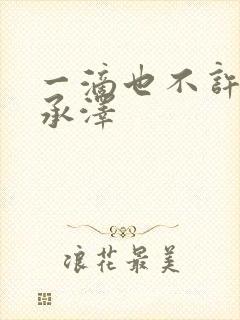 一滴也不許
承澤
浪花最美